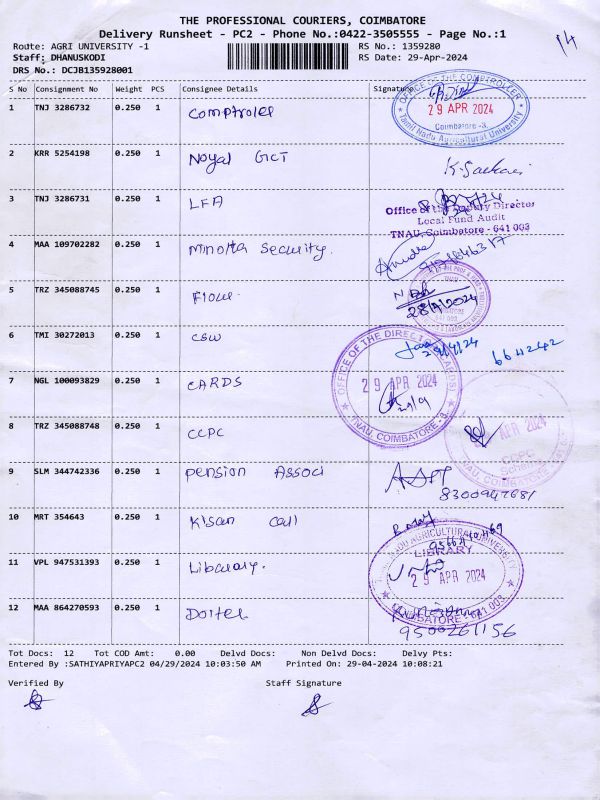 THE PROFESSIONAL COURIERS, COIMBATORE
Delivery Runsheet - PC2 - Phone No.:0422-3505555 - Page No.:1
14
Route: AGRI UNIVERSITY -1
RS No.: 1359280
Staff: DHANUSKODI
RS Date: 29-Apr-2024
DRS No.: DCJB135928001
S No Consignment No Weight PCS Consignee Details Signature
1 TNJ 3286732 0.250 1 Comptroler
OFFICE OF THE COMPTROLLER
29 APR 2024
Coimbatore -3.
Tamil Nadu Agricultural University
2 KRR 5254198 0.250 1 Noyal GCT
3 TNJ 3286731 0.250 1 LFA
Office of the Deputy Director
Local Fund Audit
TNAU, Coimbatore - 641 003
4 MAA 109702282 0.250 1 Minolta Security.
5 TRZ 345088745 0.250 1 Flour
28/4/2024
6 TMI 30272013 0.250 1 CSW
29/4/24 664242
7 NGL 100093829 0.250 1 CARDS
29 APR 2024
29/9
TNAU, COIMBATORE - 3.
8 TRZ 345088748 0.250 1 CCPC
APR 2024
CCPC
TNAU, COIMBATORE
9 SLM 344742336 0.250 1 pension Associ
8300947681
10 MRT 354643 0.250 1 Kisan call
11 VPL 947531393 0.250 1 Libarary.
AGRICULTURAL UNIVERSITY
LIBRARY
29 APR 2024
COIMBATORE - 641 003
12 MAA 864270593 0.250 1 Doitel
9500261156
Tot Docs: 12 Tot COD Amt: 0.00 Delvd Docs: Non Delvd Docs: Delvy Pts:
Entered By :SATHIYAPRIYAPC2 04/29/2024 10:03:50 AM Printed On: 29-04-2024 10:08:21
Verified By Staff Signature